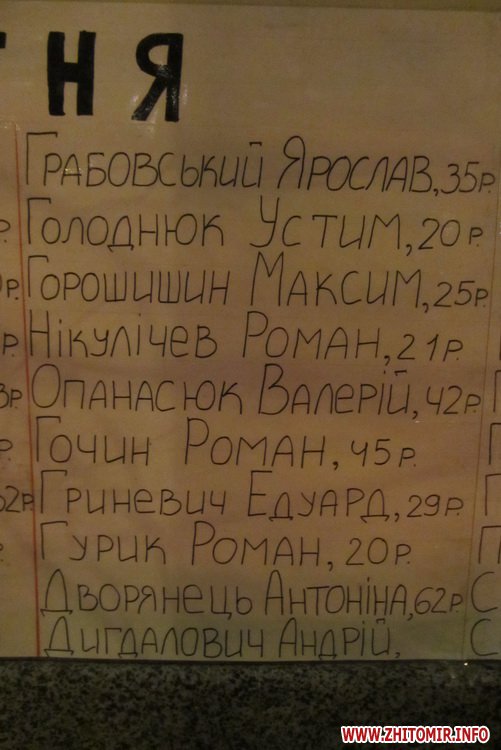 НЯ
Грабовський Ярослав, 35р.
Голоднюк Устим, 20р.
Горошишин Максим, 25р.
Нікулічев Роман, 21р.
Опанасюк Валерій, 42р.
Гочин Роман, 45р.
Гриневич Едуард, 29р.
Гурик Роман, 20р.
Дворянець Антоніна, 62р.
Дигдалович Андрій,
WWW.ZHITOMIR.INFO